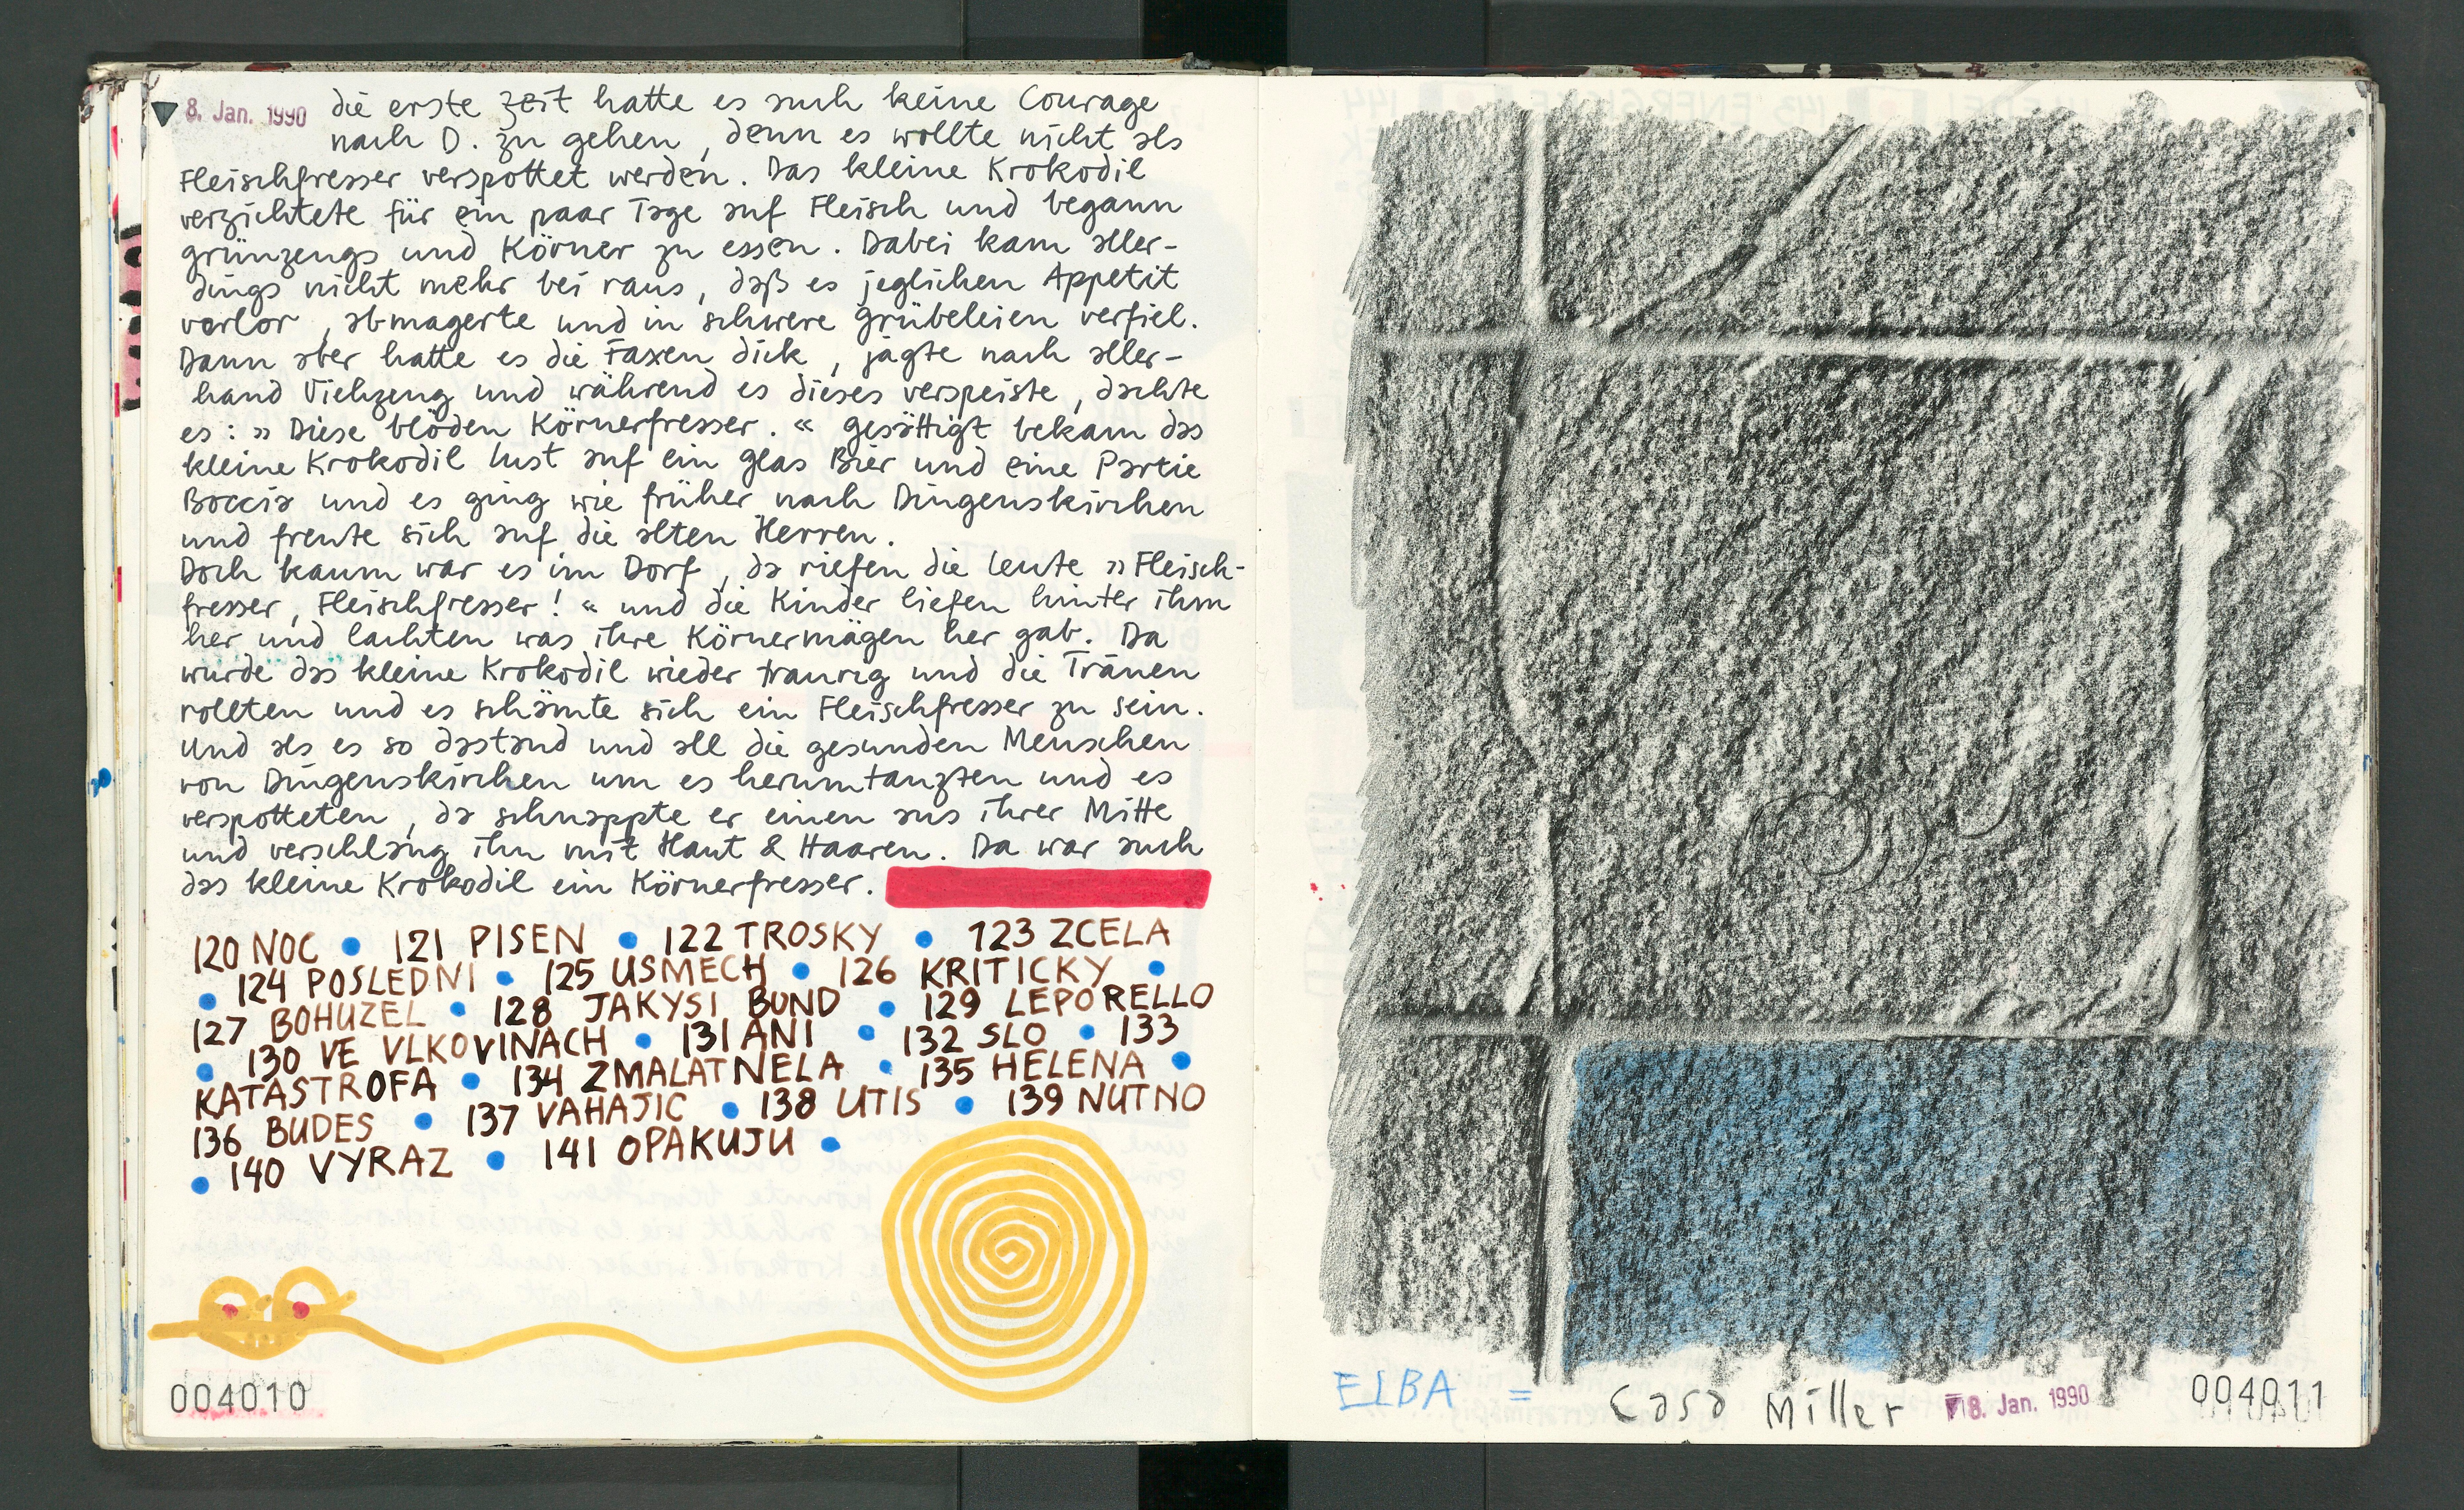 8. Jan. 1990 die erste Zeit hatte es auch keine Courage
nach D. zu gehen, denn es wollte nicht als
Fleischfresser verspottet werden. Das kleine Krokodil
verzichtete für ein paar Tage auf Fleisch und begann
grünzeugs und Körner zu essen. Dabei kam aller-
dings nicht mehr bei raus, daß es jeglichen Appetit
verlor, abmagerte und in schwere grübeleien verfiel.
Dann aber hatte es die Faxen dick, jagte nach aller-
hand Viehzeug und während es dieses verspeiste, dachte
es: » Diese blöden Körnerfresser. « gesättigt bekam das
kleine Krokodil lust auf ein glas Bier und eine Partie
Boccia und es ging wie früher nach Dingenskirchen
und freute sich auf die alten Herren.
Doch kaum war es im Dorf, da riefen die leute » Fleisch-
fresser, Fleischfresser! « und die Kinder liefen hinter ihm
her und lachten was ihre Körnermägen her gab. Da
wurde das kleine Krokodil wieder traurig und die Tränen
rollten und es schämte sich ein Fleischfresser zu sein.
Und als es so dastand und all die gesunden Menschen
von Dingenskirchen um es herumtanzten und es
verspotteten, da schnappte er einen aus ihrer Mitte
und verschlang ihn mit Haut & Haaren. Da war auch
das kleine Krokodil ein Körnerfresser.
120 NOC • 121 PISEN • 122 TROSKY • 123 ZCELA
• 124 POSLEDNI • 125 USMECH • 126 KRITICKY •
127 BOHUZEL • 128 JAKYSI BUND • 129 LEPORELLO
• 130 VE VLKOVINACH • 131 ANI • 132 SLO • 133
KATASTROFA • 134 ZMALATNELA • 135 HELENA •
136 BUDES • 137 VAHAJIC • 138 UTIS • 139 NUTNO
• 140 VYRAZ • 141 OPAKUJU •
004010
ELBA = Casa Miller 8. Jan. 1990 004011